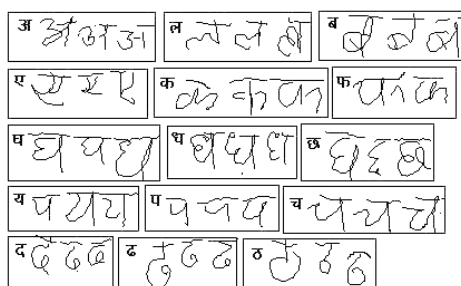 अ अ अ अ ल ल ल ल ब ब ब ब
ए ए ए ए क क क क फ फ फ
घ घ घ घ ध ध ध ध छ छ छ छ
य य य य प प प प च च च च
द द द द ढ ढ ढ ढ ठ ठ